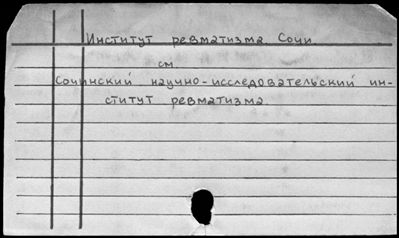 Институт ревматизма. Сочи.
см
Сочинский научно-исследовательский ин-
ститут ревматизма.